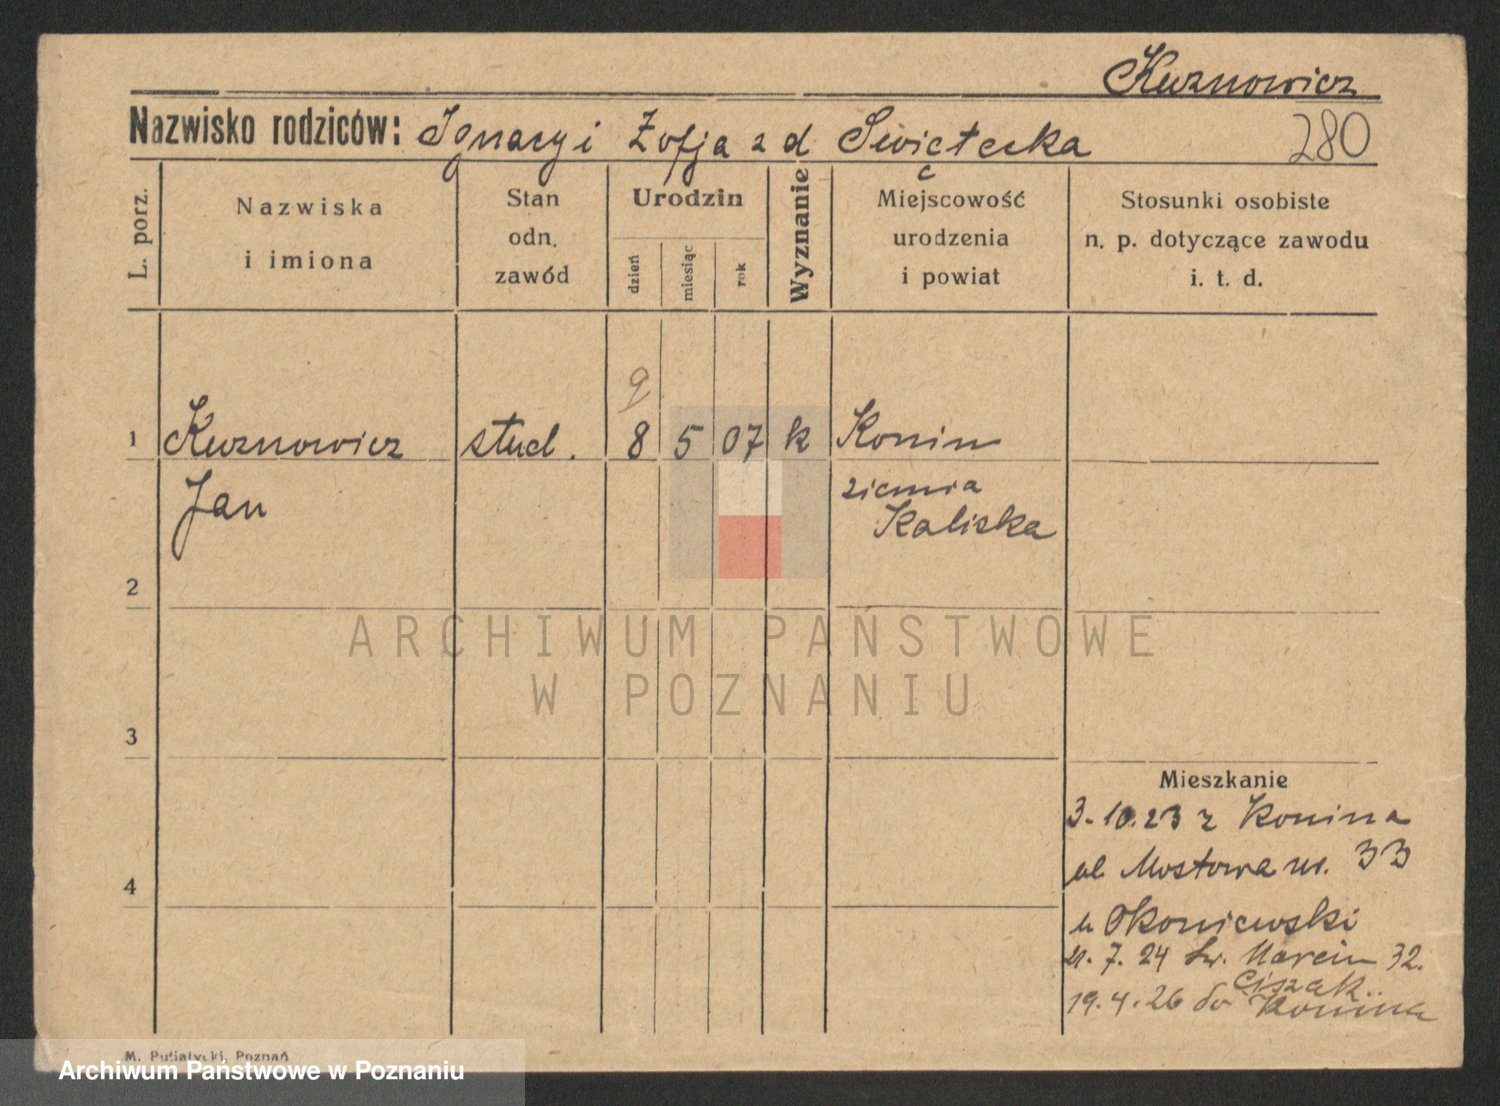 Kuznowicz
Nazwisko rodziców: Ignacy i Zofja z d Świętecka 280
L. porz.
Nazwiska i imiona
Stan odn. zawód
Urodzin
dzień miesiąc rok
Wyznanie
Miejscowość urodzenia i powiat
Stosunki osobiste n. p. dotyczące zawodu i. t. d.
9
1 Kuznowicz stud. 8 5 07 k Konin
Jan ziemia
Kaliska
2
ARCHIWUM PAŃSTWOWE
W POZNANIU
3
Mieszkanie
3.10.23 z Konina
4 ul Mostowa nr. 33
u Okoniewski
21.7.24 Św. Marcin 32.
Ciszak
19.4.26 do Konina
M. Putiatycki, Poznań
Archiwum Państwowe w Poznaniu